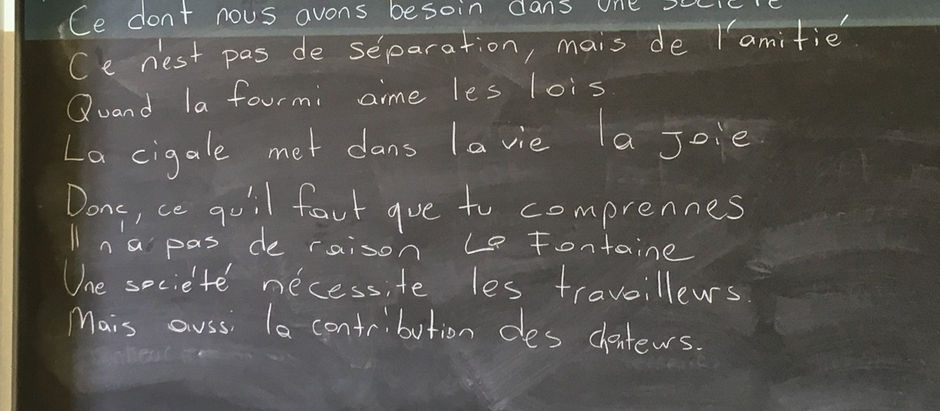 Ce dont nous avons besoin dans une société
Ce n'est pas de séparation, mais de l'amitié.
Quand la fourmi aime les lois.
La cigale met dans la vie la joie.
Donc, ce qu'il faut que tu comprennes
Il n'a pas de raison La Fontaine
Une société nécessite les travailleurs.
Mais aussi la contribution des chateurs.